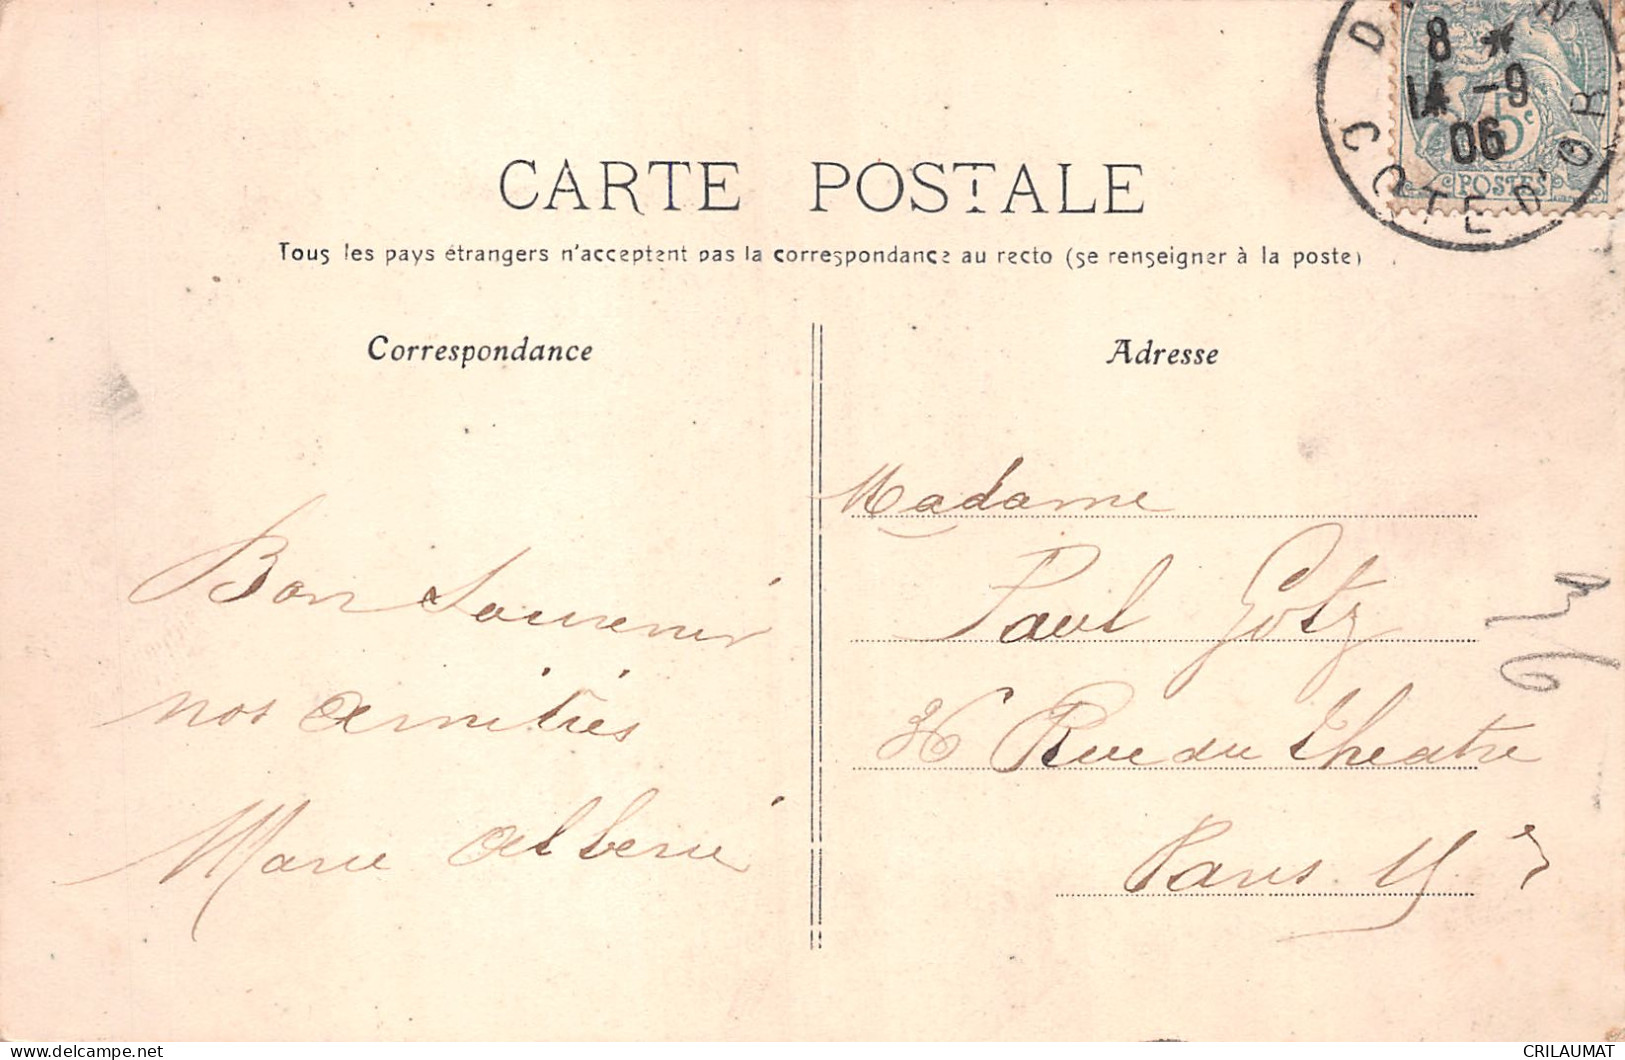 8 *
14 -9
06
COTE D'OR
5c
POSTES
CARTE POSTALE
Tous les pays étrangers n'acceptent pas la correspondance au recto (se renseigner à la poste)
Correspondance
Adresse
Bon Souvenir
nos amitiés
Marie Alberie
Madame
Paul Gotz
36 Rue du théatre
Paris 15
CRILAUMAT